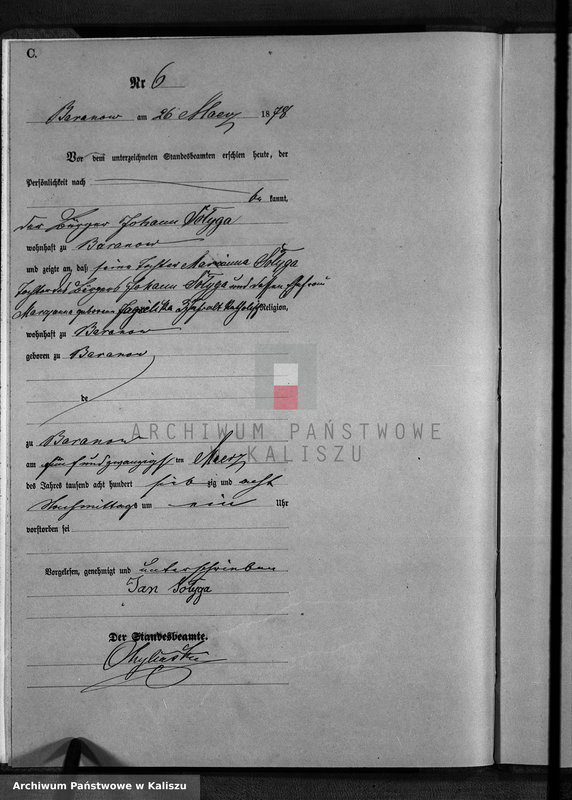 C.
Nr 6
Baranow am 26 Maerz 1878
Vor dem unterzeichneten Standesbeamten erschien heute, der
Persönlichkeit nach
be kannt,
der Bürger Johann Sołyga
wohnhaft zu Baranow
und zeigte an, daß seine Tochter Marianna Sołyga
Tochter des Bürgers Johann Sołyga und dessen Ehefrau
Maryanna geborene katholisch Religion,
wohnhaft zu Baranow
geboren zu Baranow
de
zu Baranow
am fünf und zwanzigst ten Maerz
des Jahres tausend acht hundert sieb zig und acht
Nachmittags um ein Uhr
verstorben sei
Vorgelesen, genehmigt und unterschrieben
Jan Sołyga
Der Standesbeamte.
ARCHIWUM PAŃSTWOWE
KALISZU
Archiwum Państwowe w Kaliszu